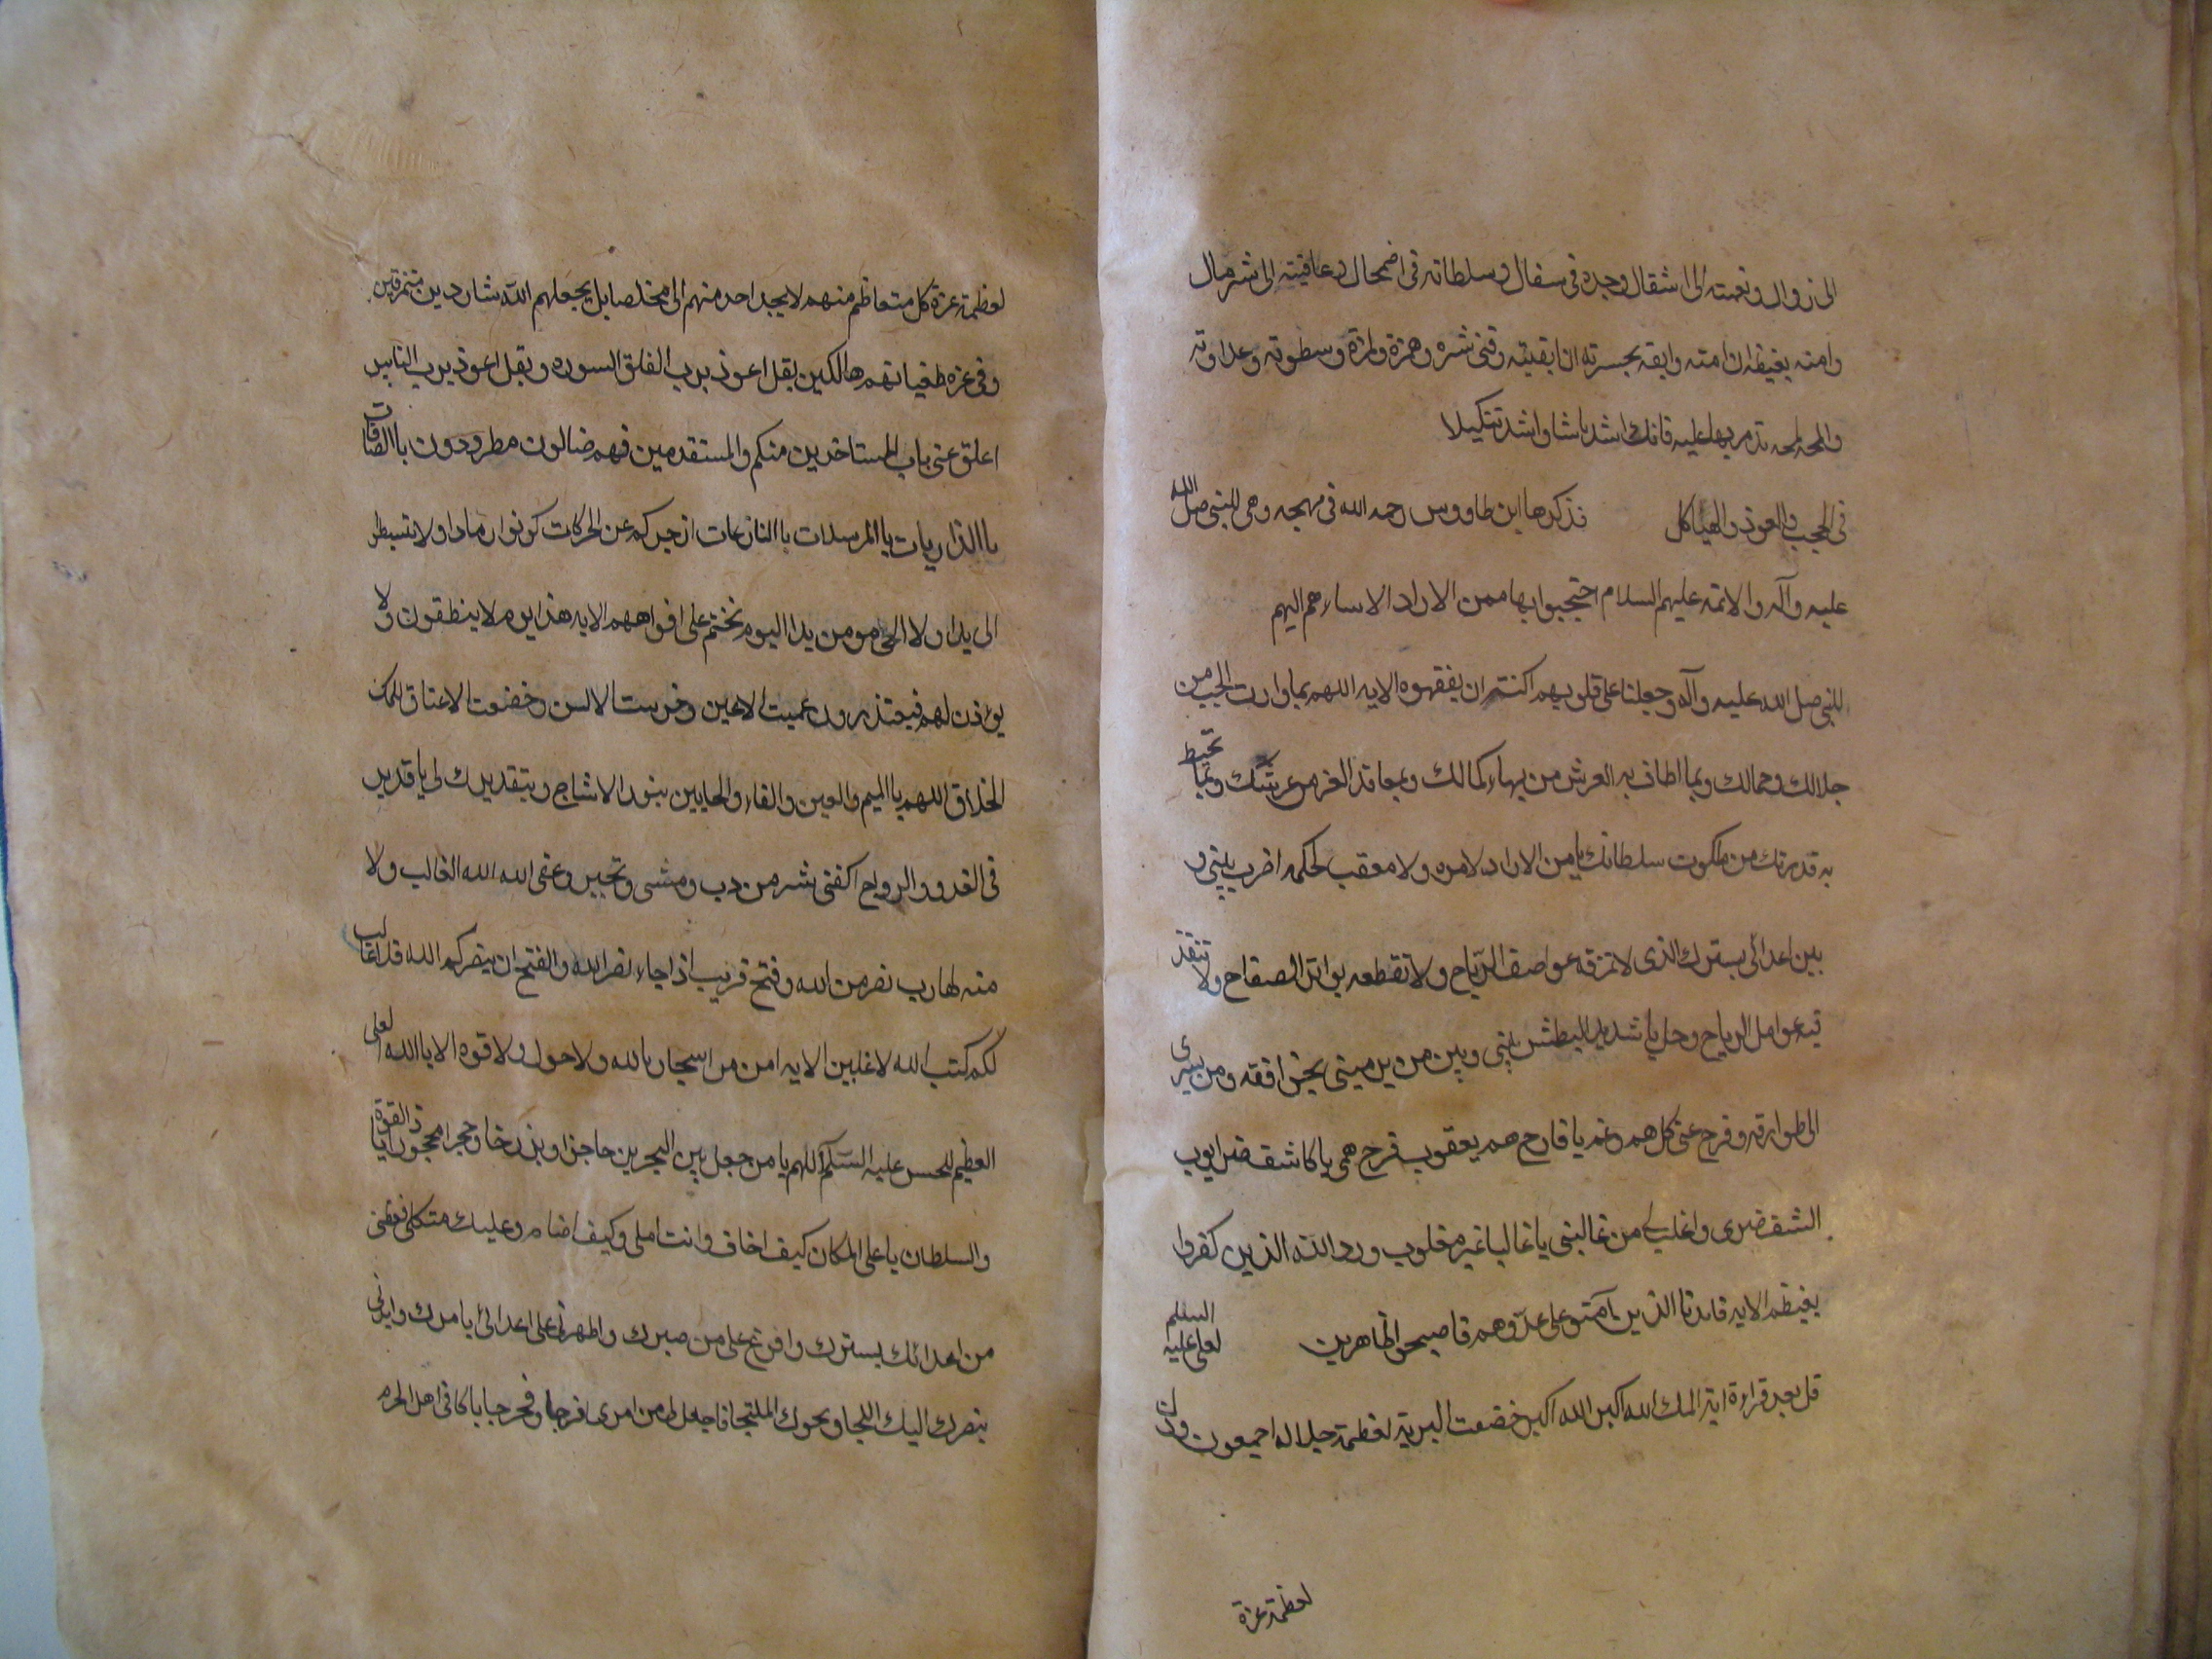 الى زوال ونعمته الى انتقال وجده فى سفال وسلطانه فى اضمحال وعاقبته الى شر مال
وامته بغيظه ان امته وابقه بحسرته ان ابقيته وقنى شره وهمزه ولمزه وسطوته وعداوته
والمحه لمحه تدمر بها عليه فانك اشد باسا واشد تنكيلا
فى الحجب والعوذ والهياكل فذكرها ابن طاووس رحمه الله فى مهجه وهى للنبى صلى الله
عليه وآله والائمه عليهم السلام احتجبوا بها ممن الاراد الاساءهم اليهم
للنبى صلى الله عليه وآله وجعلنا على قلوبهم اكنة ان يفقهوه الايه اللهم بما وارت الحجب من
جلالك وجمالك وبما اطاف به العرش من بهاء كمالك وبمعاقد العز من عرشك وبما تحيط
به قدرتك من ملكوت سلطانك يا من لا راد لامره ولا معقب لحكمه اضرب بينى و
بين اعدائى بسترك الذى لا تمزقه عواصف الرياح ولا تقطعه بواتر الصفاح ولا تنفذ
فيه عوامل الرماح وحل يا شديد البطش بينى وبين من يرمينى بخوافقه ومن يسرى
الى طوارقه وفرج عنى كل هم وغم يا فارج هم يعقوب فرج همى يا كاشف ضر ايوب
اكشف ضرى واغلب لى من غالبنى يا غالبا غير مغلوب ورد الله الذين كفروا
بغيظهم الايه فايدنا الذين آمنوا على عدوهم فاصبحوا ظاهرين لعلى عليه السلم
قل بعد قراءة اية الملك الله اكبر الله اكبر خضعت البرية لعظمة جلاله اجمعون وذل
لعظمة عزة
لعظمة عزة كل متعاظم منهم لا يجد احد منهم الى مخلصا بل يجعلهم الله شاردين متمزقين
وفى عزه طغيانهم هالكين بقل اعوذ برب الفلق السوره وبقل اعوذ برب الناس
اغلق عنى باب المستاخرين منكم والمستقدمين فهم ضالون مطرودون بالصافات
بالذاريات بالمرسلات بالنازعات ازجركم عن الحركات كونوا رمادا ولا تبسطوا
الى يدا ولا الى مومن يدا اليوم نختم على افواههم الايه هذا يوم لا ينطقون ولا
يؤذن لهم فيعتذرون عميت الاعين وخرست الالسن وخضعت الاعناق للملك
الخلاق اللهم بالميم والعين والفاء والحايين بنور الاشباح وبتقديرك لى يا قدير
فى الغدو والرواح اكفنى شر من دب ومشى وتجبر وعتى الله الله الغالب ولا
منه لهارب نصر من الله وفتح قريب اذا جاء نصر الله والفتح ان ينصركم الله فلا غالب
لكم كتب الله لاغلبن الايه امن من استجار بالله ولا حول ولا قوه الا بالله العلى
العظيم للحسن عليه السلم اللهم يا من جعل بين البحرين حاجزا وبرزخا وحجرا محجورا يا ذالقوة
والسلطان يا على المكان كيف اخاف وانت املى وكيف اضام وعليك متكلى فغطنى
من اعدائك بسترك وافرغ على من صبرك واظهرنى على اعدائى بامرك وايدنى
بنصرك اليك اللجا ونحوك الملتجا فاجعل لى من امرى فرجا ومخرجا يا كافى اهل الحرم